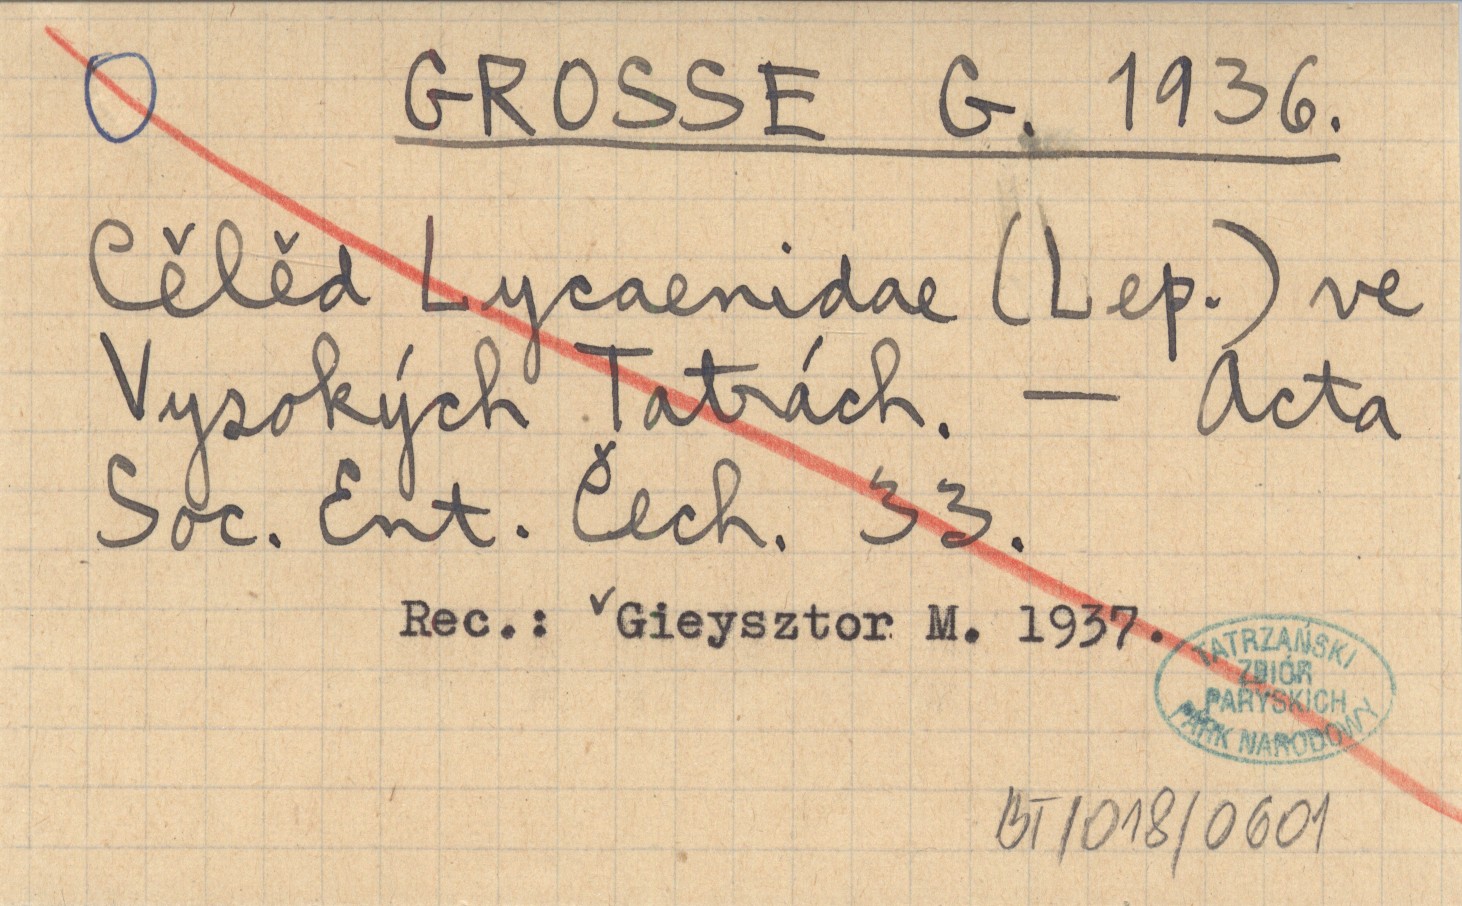 GROSSE G. 1936.
Cělěd Lycaenidae (Lep.) ve
Vysokých Tatrách. — Acta
Soc. Ent. Čech. 33.
Rec.: Gieysztor M. 1937.
TATRZAŃSKI
ZBIÓR
PARYSKICH
PARK NARODOWY
BT/018/0601